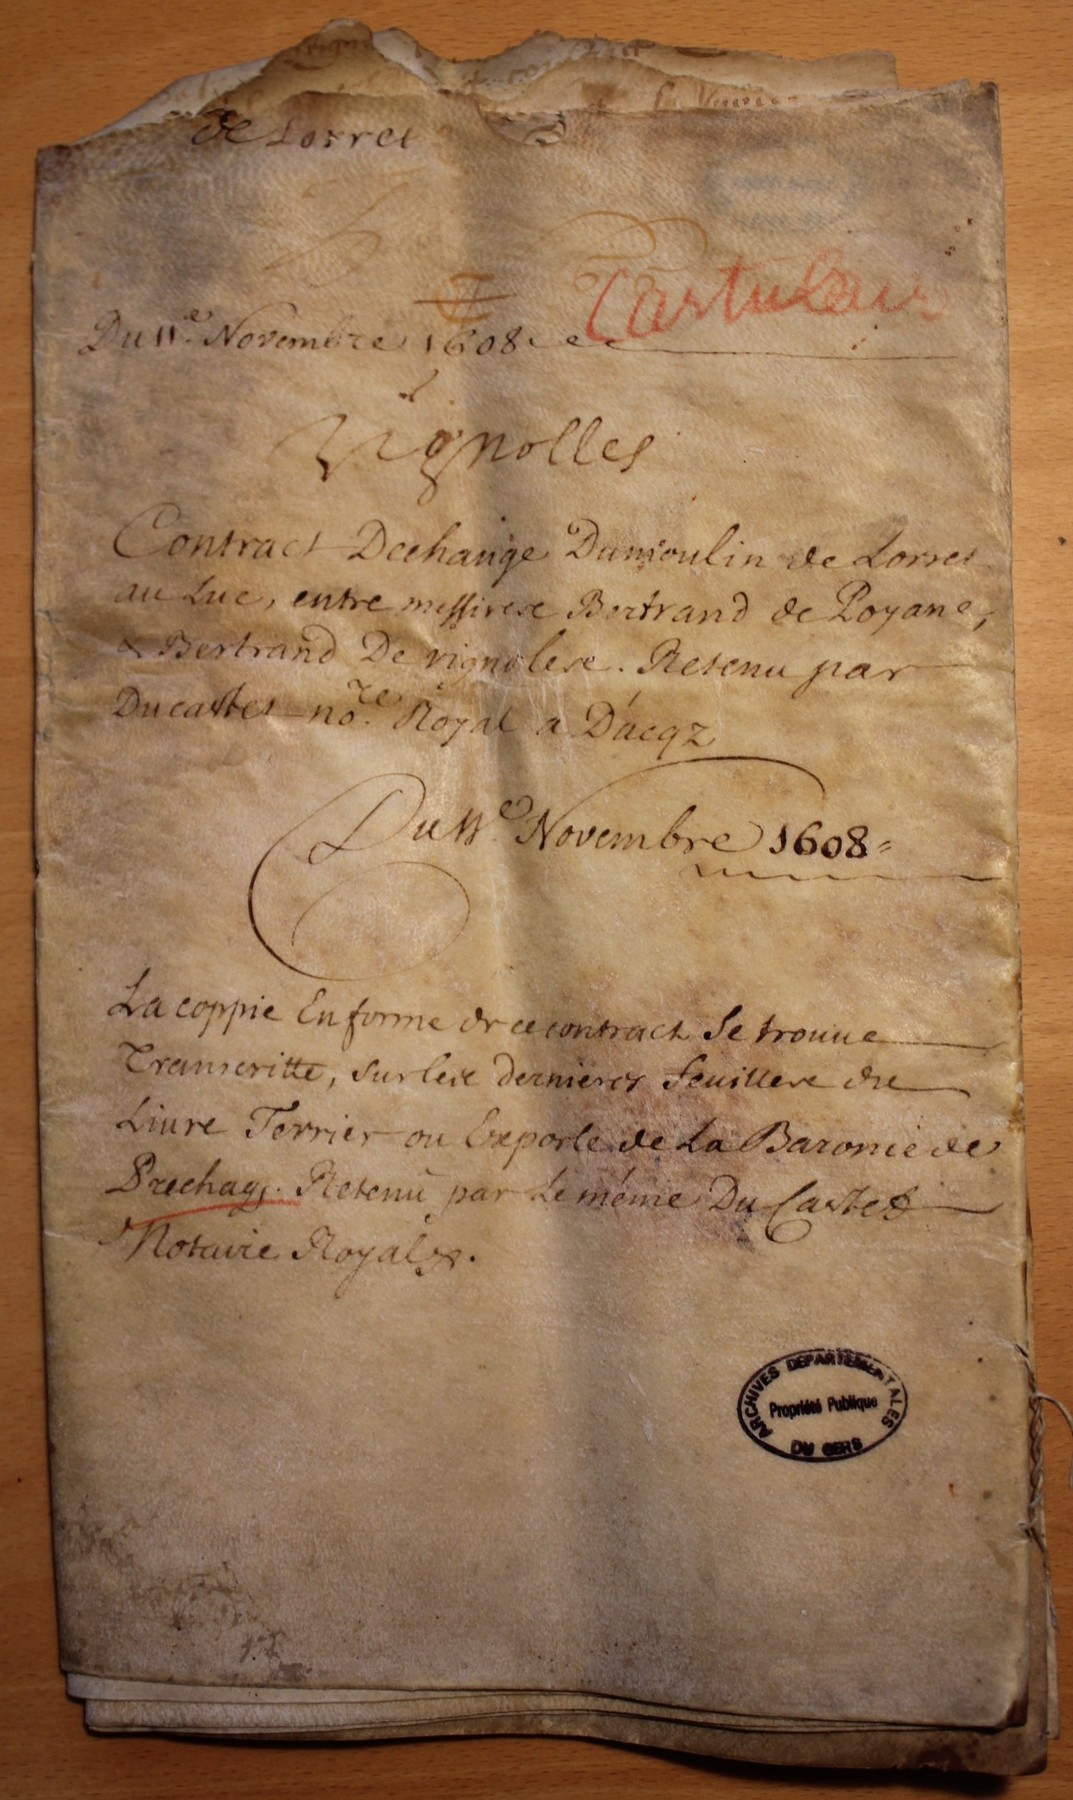 de Lorret
Cartulaire
Du 11e. Novembre 1608
Vignolles
Contract Dechange Du moulin de Lorret
au Luc, entre messires Bertrand de Poyane,
& Bertrand De vignoles. Retenu par
Ducastet no.re Royal a Dacqz
Du 11e. Novembre 1608
La coppie En forme de ce contract Se trouue
Transcritte, sur les dernieres feuilles du
Liure Terrier ou Exporle de La Baronie de
Prechaq. Retenu par Le méme Du Castet
Notaire Royal
ARCHIVES DEPARTEMENTALES
Propriété Publique
DU GERS